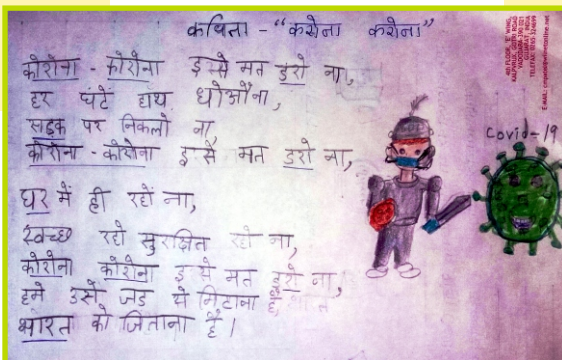 कविता - "करोना करोना"
कोरोना - कोरोना इससे मत डरो ना,
हर घंटें हाथ धोओंना,
सड़क पर निकलो ना,
कोरोना - कोरोना इससे मत डरो ना,
घर में ही रहों ना,
स्वच्छ रहो सुरक्षित रहो ना,
कोरोना कोरोना इससे मत डरो ना,
हमे उसे जड से मिटाना है
भारत को जिताना है।
Covid-19
4th FLOOR, 'E' WING,
GUJARAT, INDIA